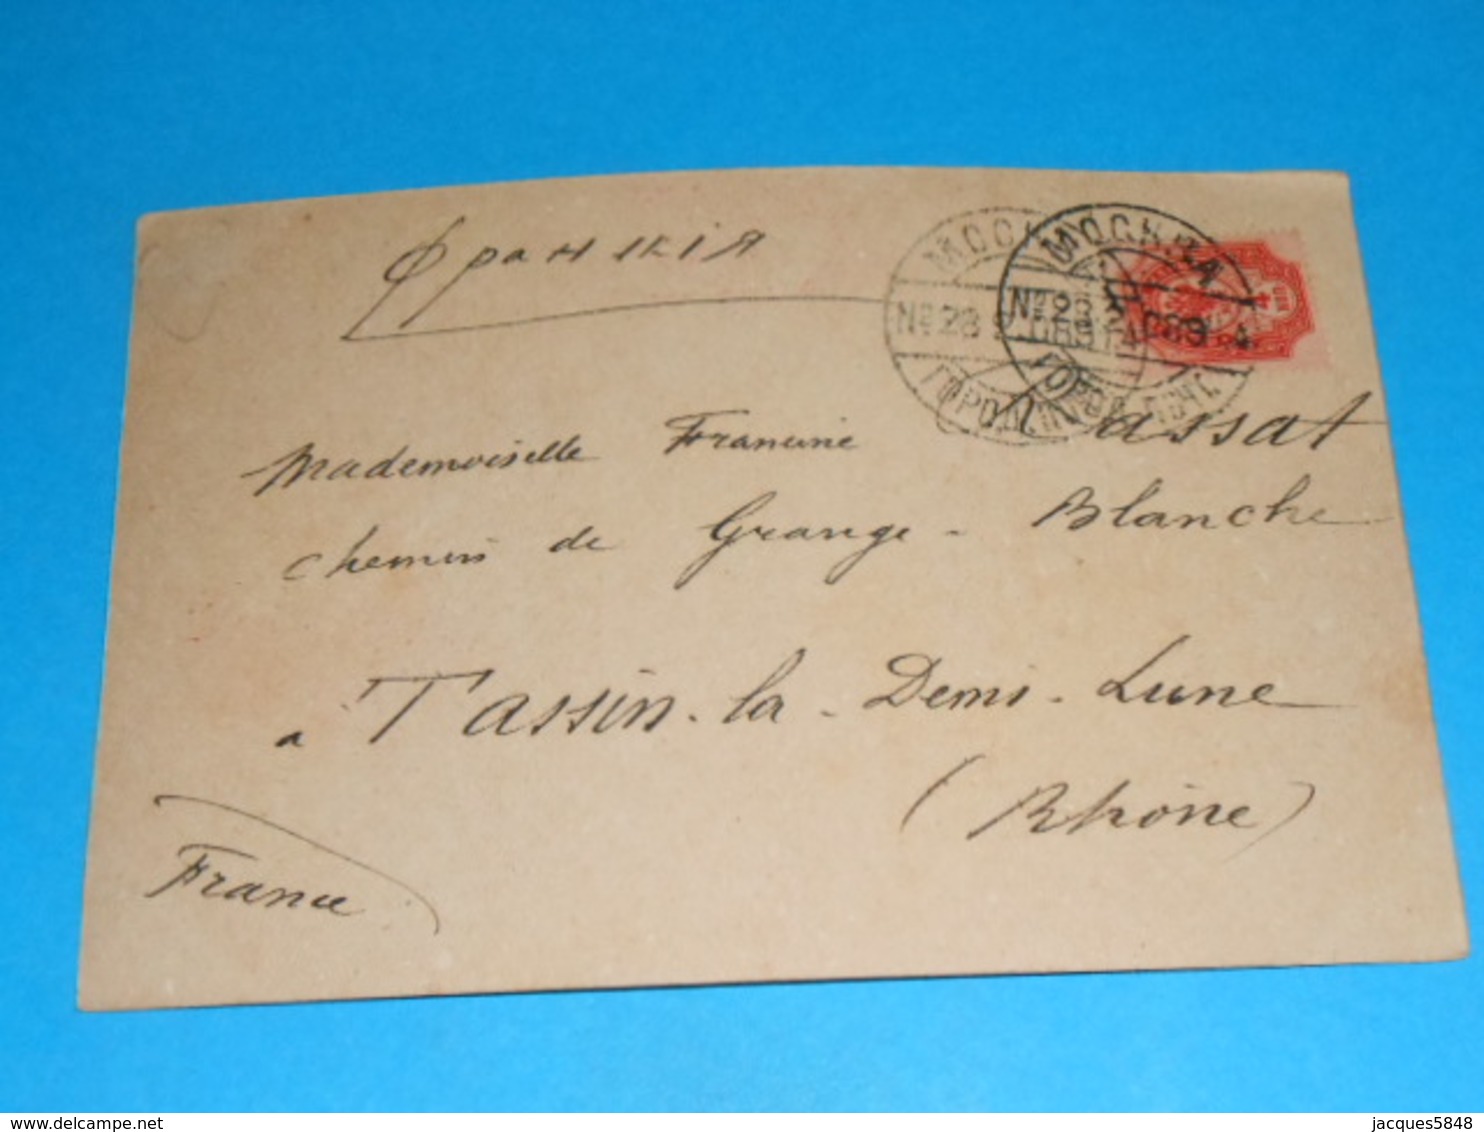 Франкія
МОСКВА
№ 28
ГОРОД. ПОЧТ.
Mademoiselle Francine
chemin de Grange-Blanche
a Tassin-la-Demi-Lune
(Rhône)
France
www.delcampe.net
jacques5848